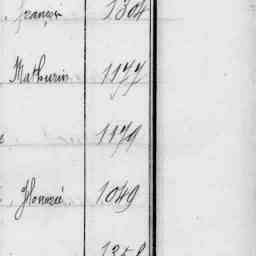 françois 1304
Mathurin 1177
1179
Honoré 1049
1358